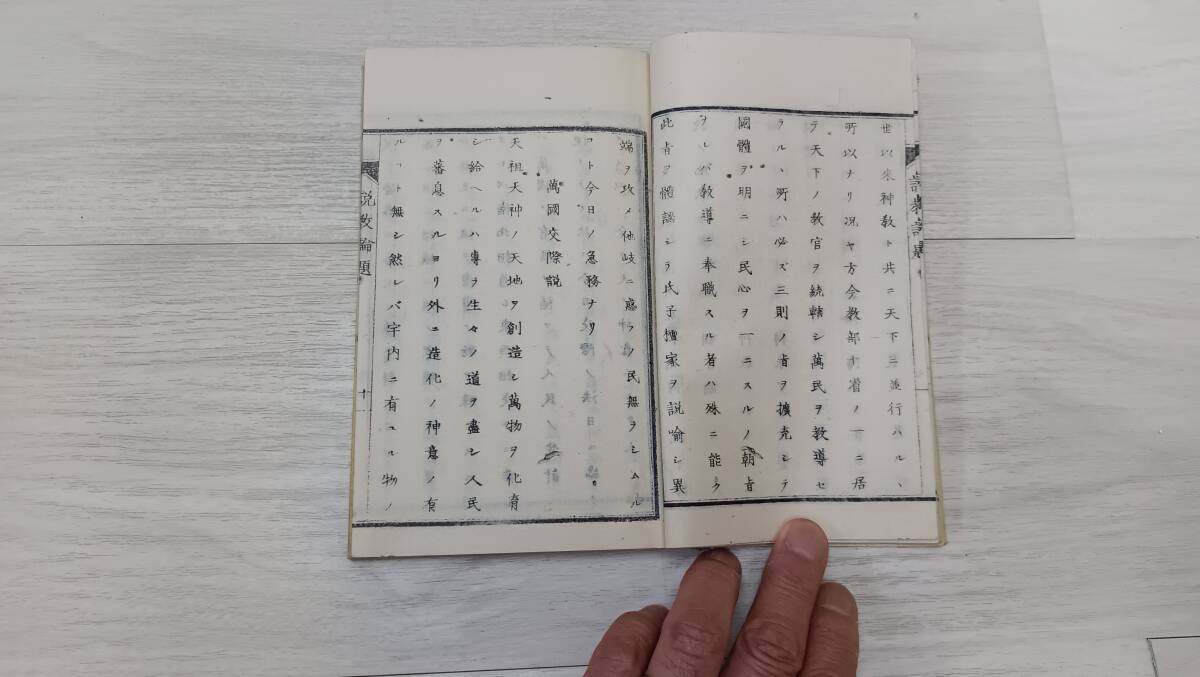 世以来神教ト共ニ天下ニ並行ハル丶
所以ナリ况ヤ方今教部ノ省ノ一ニ居
テ天下ノ教官ヲ統轄シ萬民ヲ教導セ
ラル丶所ハ必ズ三則ノ旨ヲ擴充シテ
國體ヲ明ニシ民心ヲ一ニスルノ朝旨
ヲレバ教導ニ奉職スル者ハ殊ニ能ク
此旨ヲ體認シテ氏子檀家ヲ説喩シ異
端ヲ攻メ他岐ニ惑フノ民無ヲシムル
コト今日ノ急務ナリ
萬國交際説
天祖天神ノ天地ヲ創造シ萬物ヲ化育
シ給ヘルハ專ヲ生々ノ道ヲ盡シ人民
ヲ蕃息スルヨリ外ニ造化ノ神意ノ有
ルコト無シ然レバ宇内ニ有ユル物ノ
説教論題
十